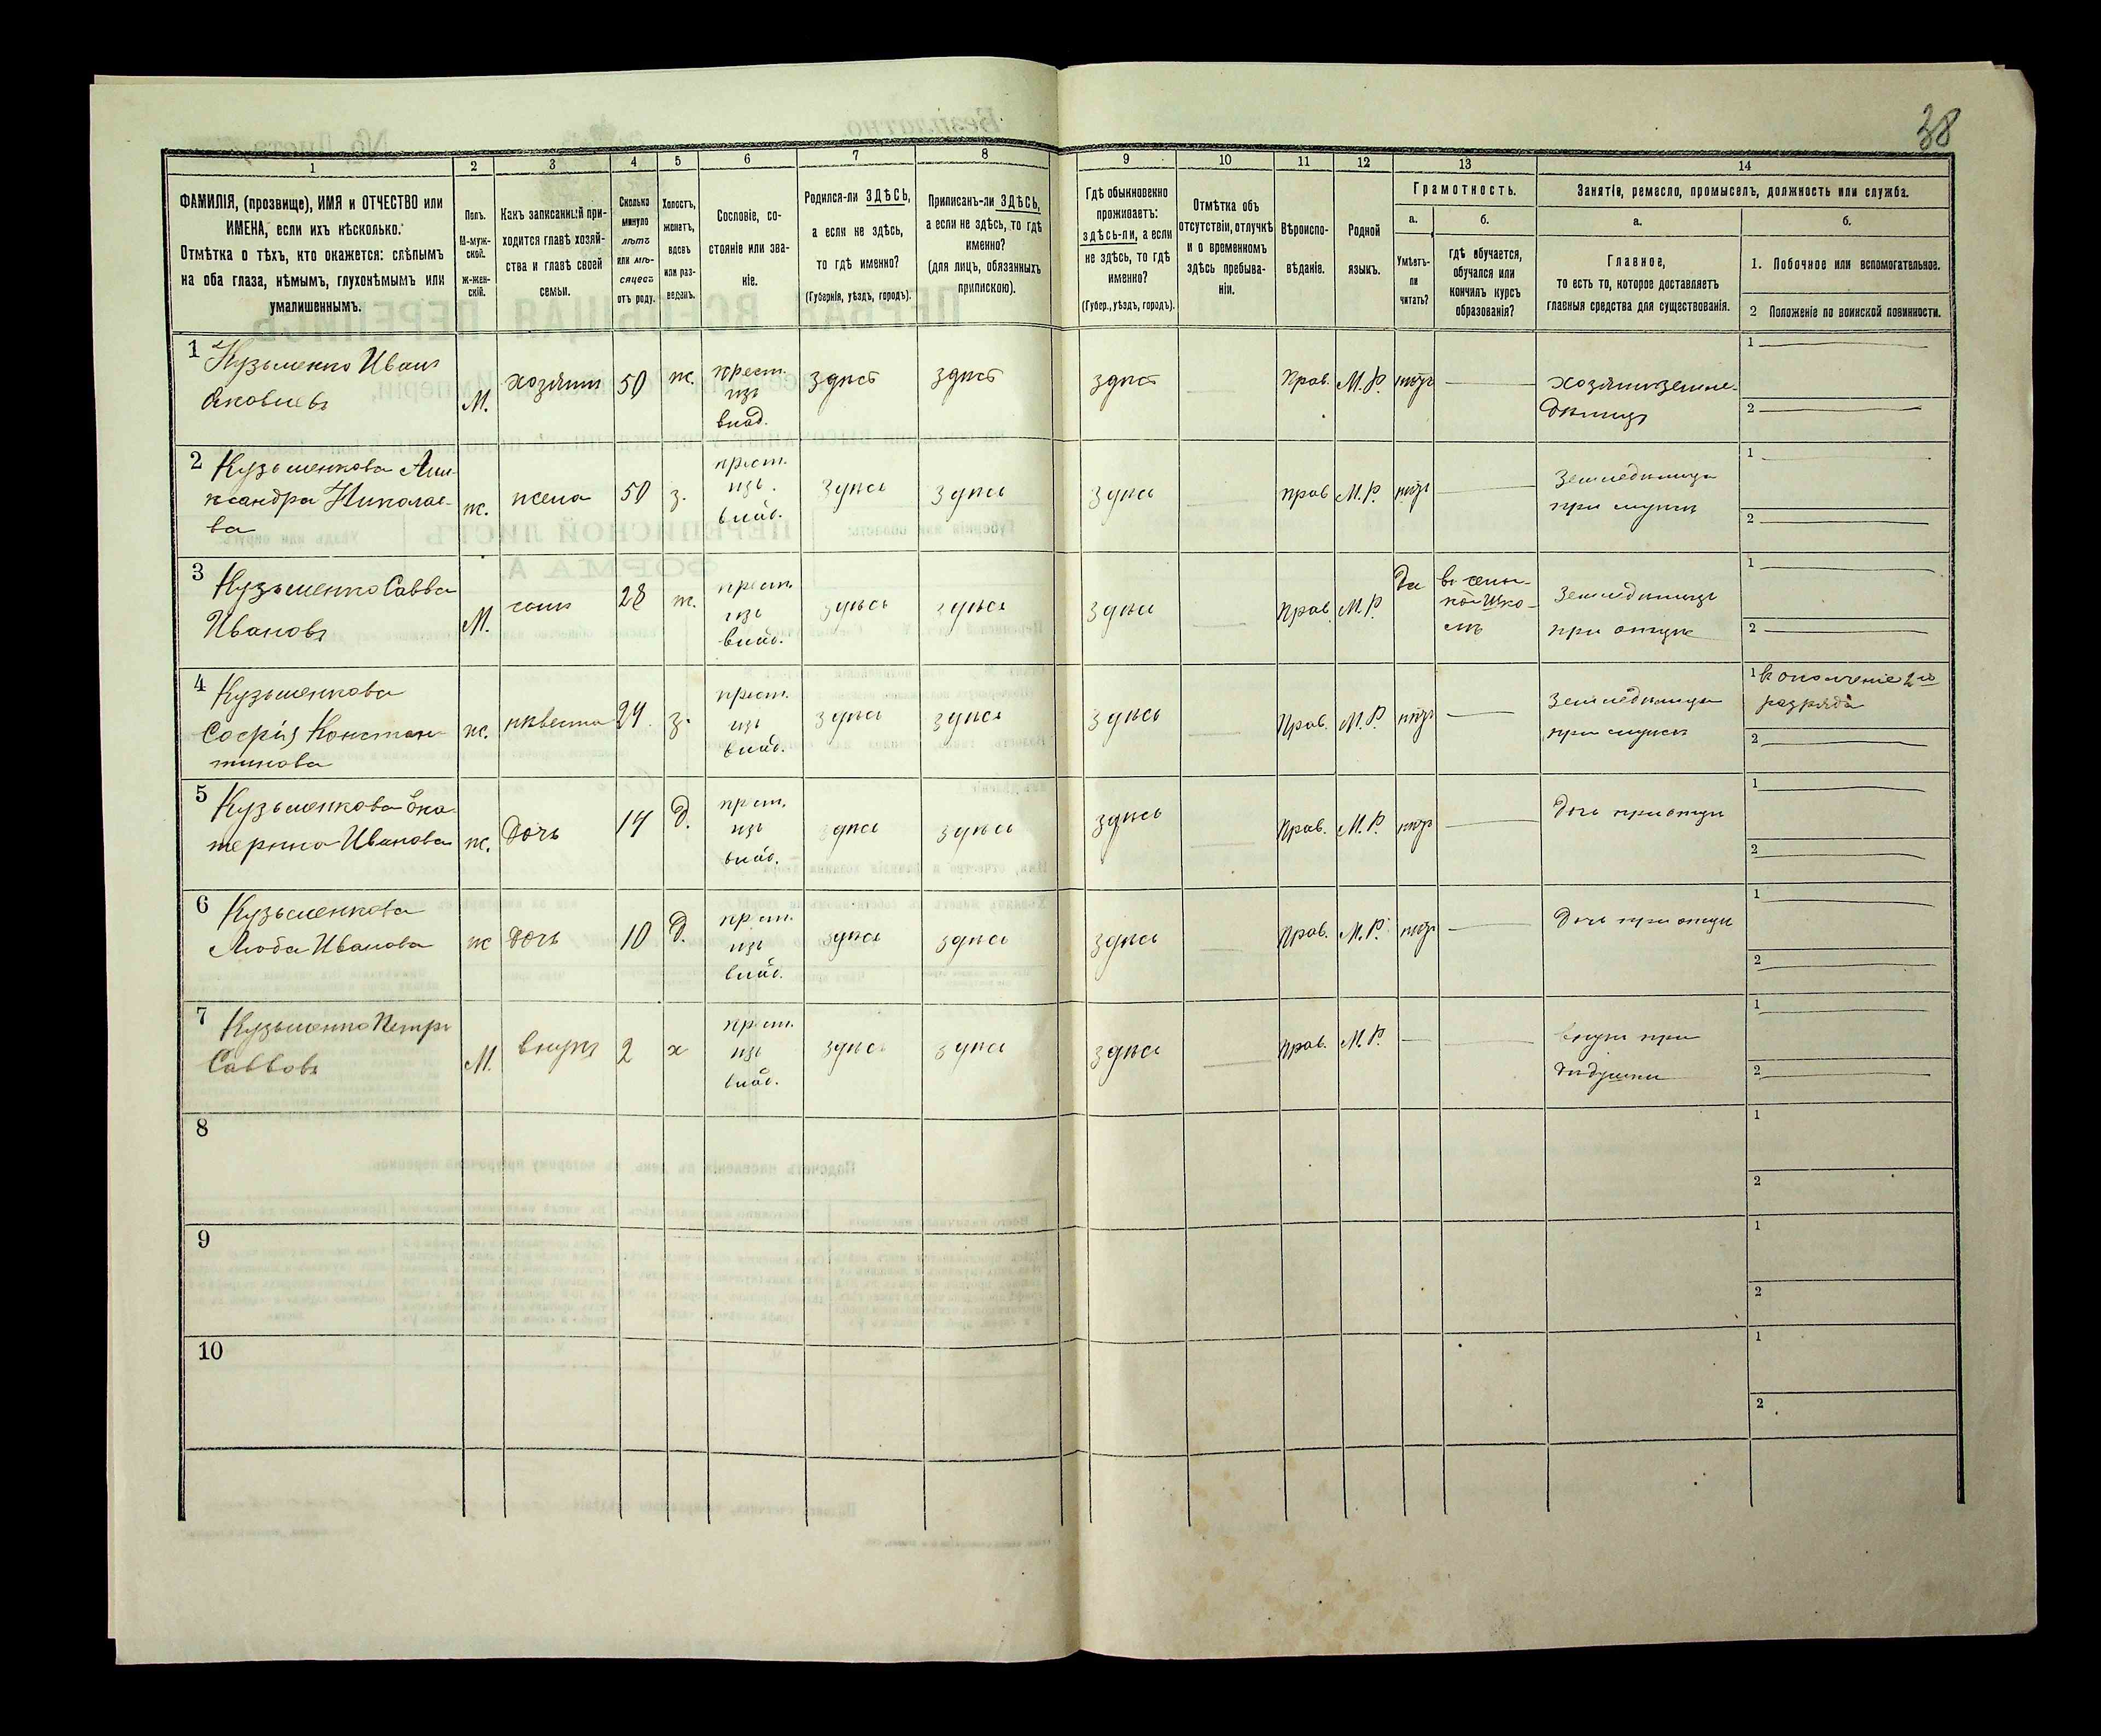 38
1
2
3
4
5
6
7
8
9
10
11
12
13
14
ФАМИЛІЯ, (прозвище), ИМЯ и ОТЧЕСТВО или
ИМЕНА, если ихъ нѣсколько.
Отмѣтка о тѣхъ, кто окажется: слѣпымъ
на оба глаза, нѣмымъ, глухонѣмымъ или
умалишеннымъ.
Полъ.
М-муж-
ской.
Ж-жен-
скій.
Какъ записанный при-
ходится главѣ хозяй-
ства и главѣ своей
семьи.
Сколько
минуло
лѣтъ
или мѣ-
сяцевъ
отъ роду.
Холостъ,
женатъ,
вдовъ
или раз-
веденъ.
Сословіе, со-
стояніе или зва-
ніе.
Родился-ли ЗДѢСЬ,
а если не здѣсь,
то гдѣ именно?
(Губернія, уѣздъ, городъ).
Приписанъ-ли ЗДѢСЬ,
а если не здѣсь, то гдѣ
именно?
(для лицъ, обязанныхъ
припискою).
Гдѣ обыкновенно
проживаетъ:
здѣсь-ли, а если
не здѣсь, то гдѣ
именно?
(Губер., уѣздъ, городъ).
Отмѣтка объ
отсутствіи, отлучкѣ
и о временномъ
здѣсь пребыва-
ніи.
Вѣроиспо-
вѣданіе.
Родной
языкъ.
Грамотность.
а.
Умѣетъ-
ли
читать?
б.
гдѣ обучается,
обучался или
кончилъ курсъ
образованія?
Занятіе, ремесло, промыселъ, должность или служба.
а.
Главное,
то есть то, которое доставляетъ
главныя средства для существованія.
б.
1. Побочное или вспомогательное.
2 Положеніе по воинской повинности.
1 Кузьменко Иванъ
Яковлевъ
М.
хозяинъ
50
ж.
крест.
изъ
влад.
здѣсь
здѣсь
здѣсь
Прав.
М.Р.
нѣтъ
хозяинъ земле-
дѣлецъ
1
2
2 Кузьменкова Але-
ксандра Николае-
ва
ж.
жена
50
з.
крест.
изъ
влад.
здѣсь
здѣсь
здѣсь
прав
М.Р.
нѣтъ
Земледѣлица
при мужѣ
1
2
3 Кузьменко Савва
Ивановъ
М.
сынъ
28
ж.
крест.
изъ
влад.
здѣсь
здѣсь
здѣсь
Прав.
М.Р.
Да
въ сель-
кой Шко-
лѣ
Земледѣлецъ
при отцѣ
1
2
4 Кузьменкова
Софія Констан-
тинова
ж.
нѣвестка
24.
з.
крест.
изъ
влад.
здѣсь
здѣсь
здѣсь
Прав.
М.Р.
нѣтъ
Земледѣлица
при мужѣ
1 в ополченіе 2го
разряда
2
5 Кузьменкова Ека-
терина Иванова
ж.
Дочь
14
Д.
крест.
изъ
влад.
здѣсь
здѣсь
здѣсь
Прав.
М.Р.
нѣтъ
Дочь при отцѣ
1
2
6 Кузьменкова
Люба Иванова
ж
Дочь
10
Д.
крест.
изъ
влад.
здѣсь
здѣсь
здѣсь
Прав.
М.Р.
нѣтъ
Дочь при отцѣ
1
2
7 Кузьменко Петръ
Саввовъ
М.
внукъ
2
х
крест.
изъ
влад.
здѣсь
здѣсь
здѣсь
Прав.
М.Р.
внукъ при
дѣдушки
1
2
8
1
2
9
1
2
10
1
2